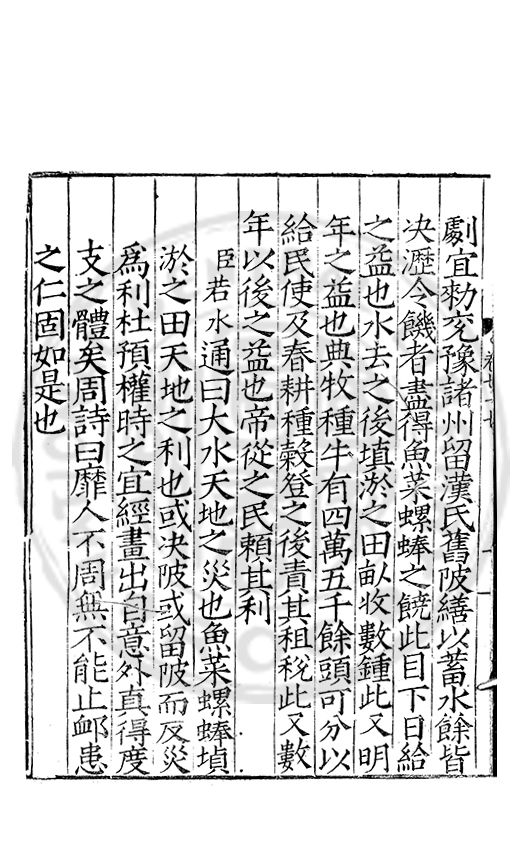 劇宜勑兖豫諸州留漢氏舊陂繕以蓄水餘皆
决瀝令饑者盡得魚菜螺蜯之饒此目下日給
之益也水去之後填淤之田畝收數鍾此又明
年之益也典牧種牛有四萬五千餘頭可分以
給民使及春耕種糓登之後責其租稅此又數
年以後之益也帝從之民賴其利
臣若水通曰大水天地之災也魚菜螺蜯塡
淤之田天地之利也或决陂或留陂而反災
爲利杜預權時之宜經畫出自意外真得度
支之體矣周詩曰靡人不周無不能止䘏患
之仁固如是也